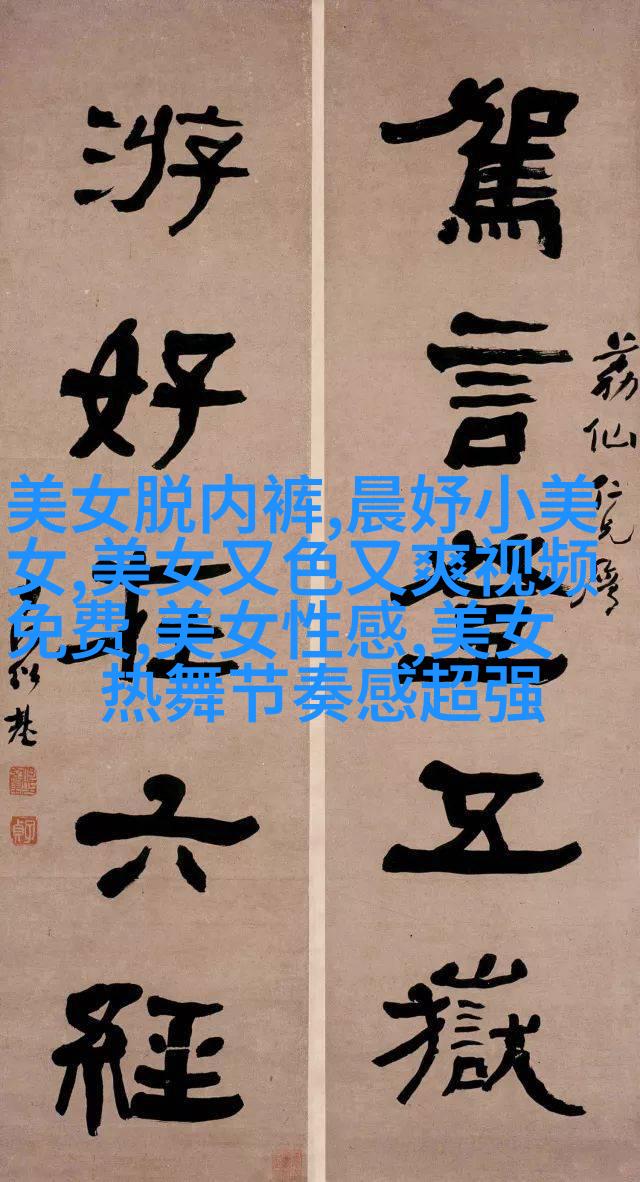 駕言登五嶽
荔仙仁兄
游好在六經
紹基
美女脱内裤,晨妤小美
女,美女又色又爽视频
免费,美女性感,美女
热舞节奏感超强